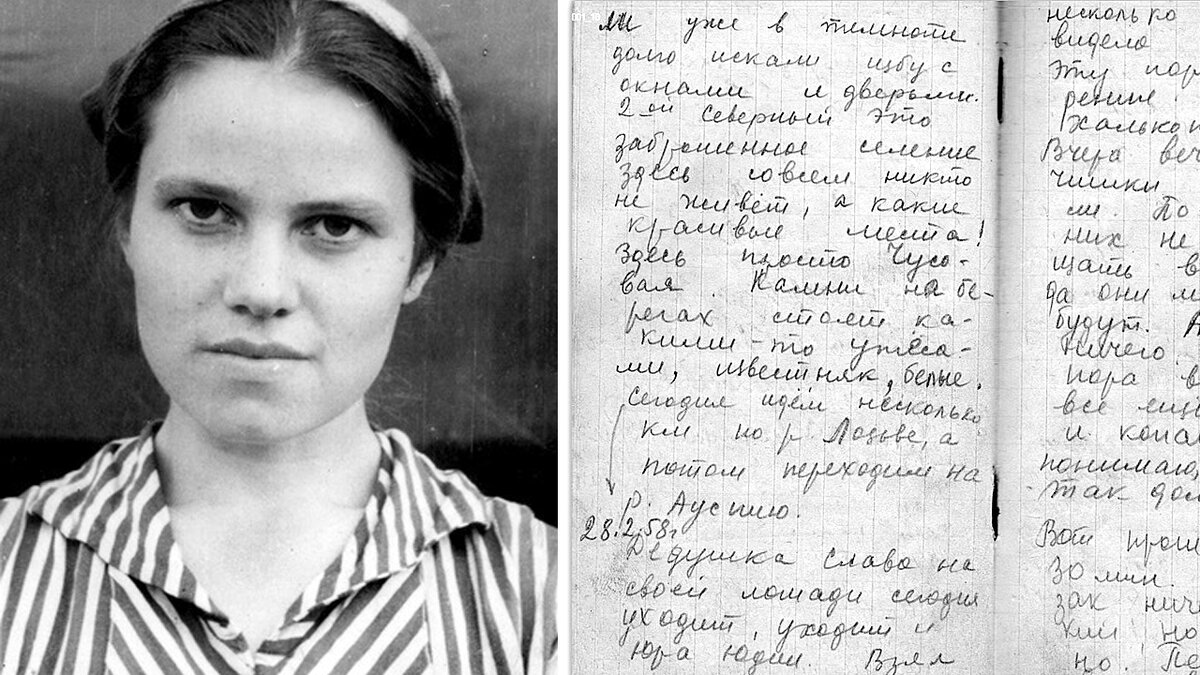 Мы уже в темноте
долго искали избу с
окнами и дверьми.
2-ой Северный это
заброшенное селение
здесь совсем никто
не живёт, а какие
красивые места!
Здесь просто Чусо-
вая. Камни на бе-
регах стоят ка-
кими-то утёса-
ми, известняк, белые.
Сегодня идём несколько
км по р Лозьве, а
потом переходим на
р. Ауспию.
28.2.58г
Дедушка Слава на
своей лошади сегодня
уходит, уходит и
Юра Юдин. Взял
несколько
видела
Эту пор
рение
Халькоп
Вчера веч
чишки
ли. По
них не
щать в
да они м
будут.
Ничего.
Пора в
все ещё
и копа
понимаю,
так дол
Вот прош
30 мин.
зак нич
ки но
но. Пе